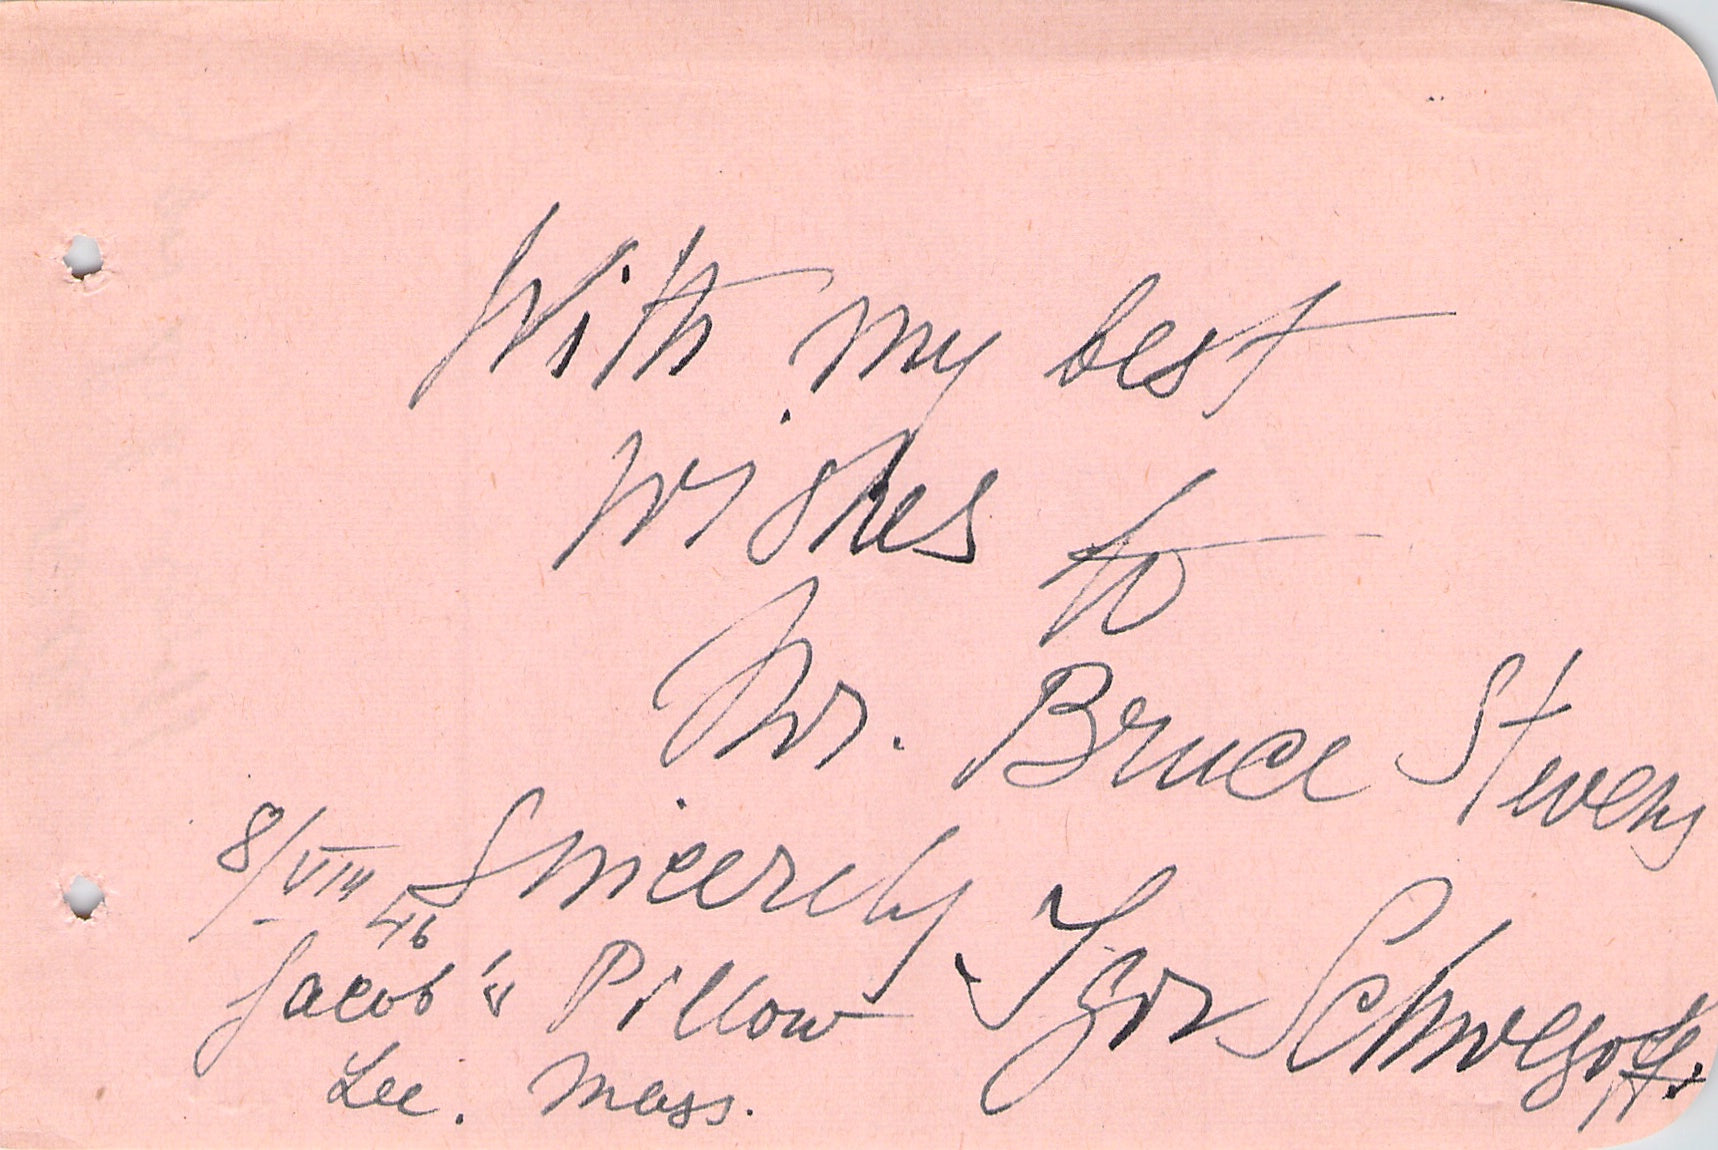 With my best
wishes to
Mr. Bruce Stevens
Sincerely Igor Schwezoff.
8/VIII 46
Jacob's Pillow
Lee. Mass.